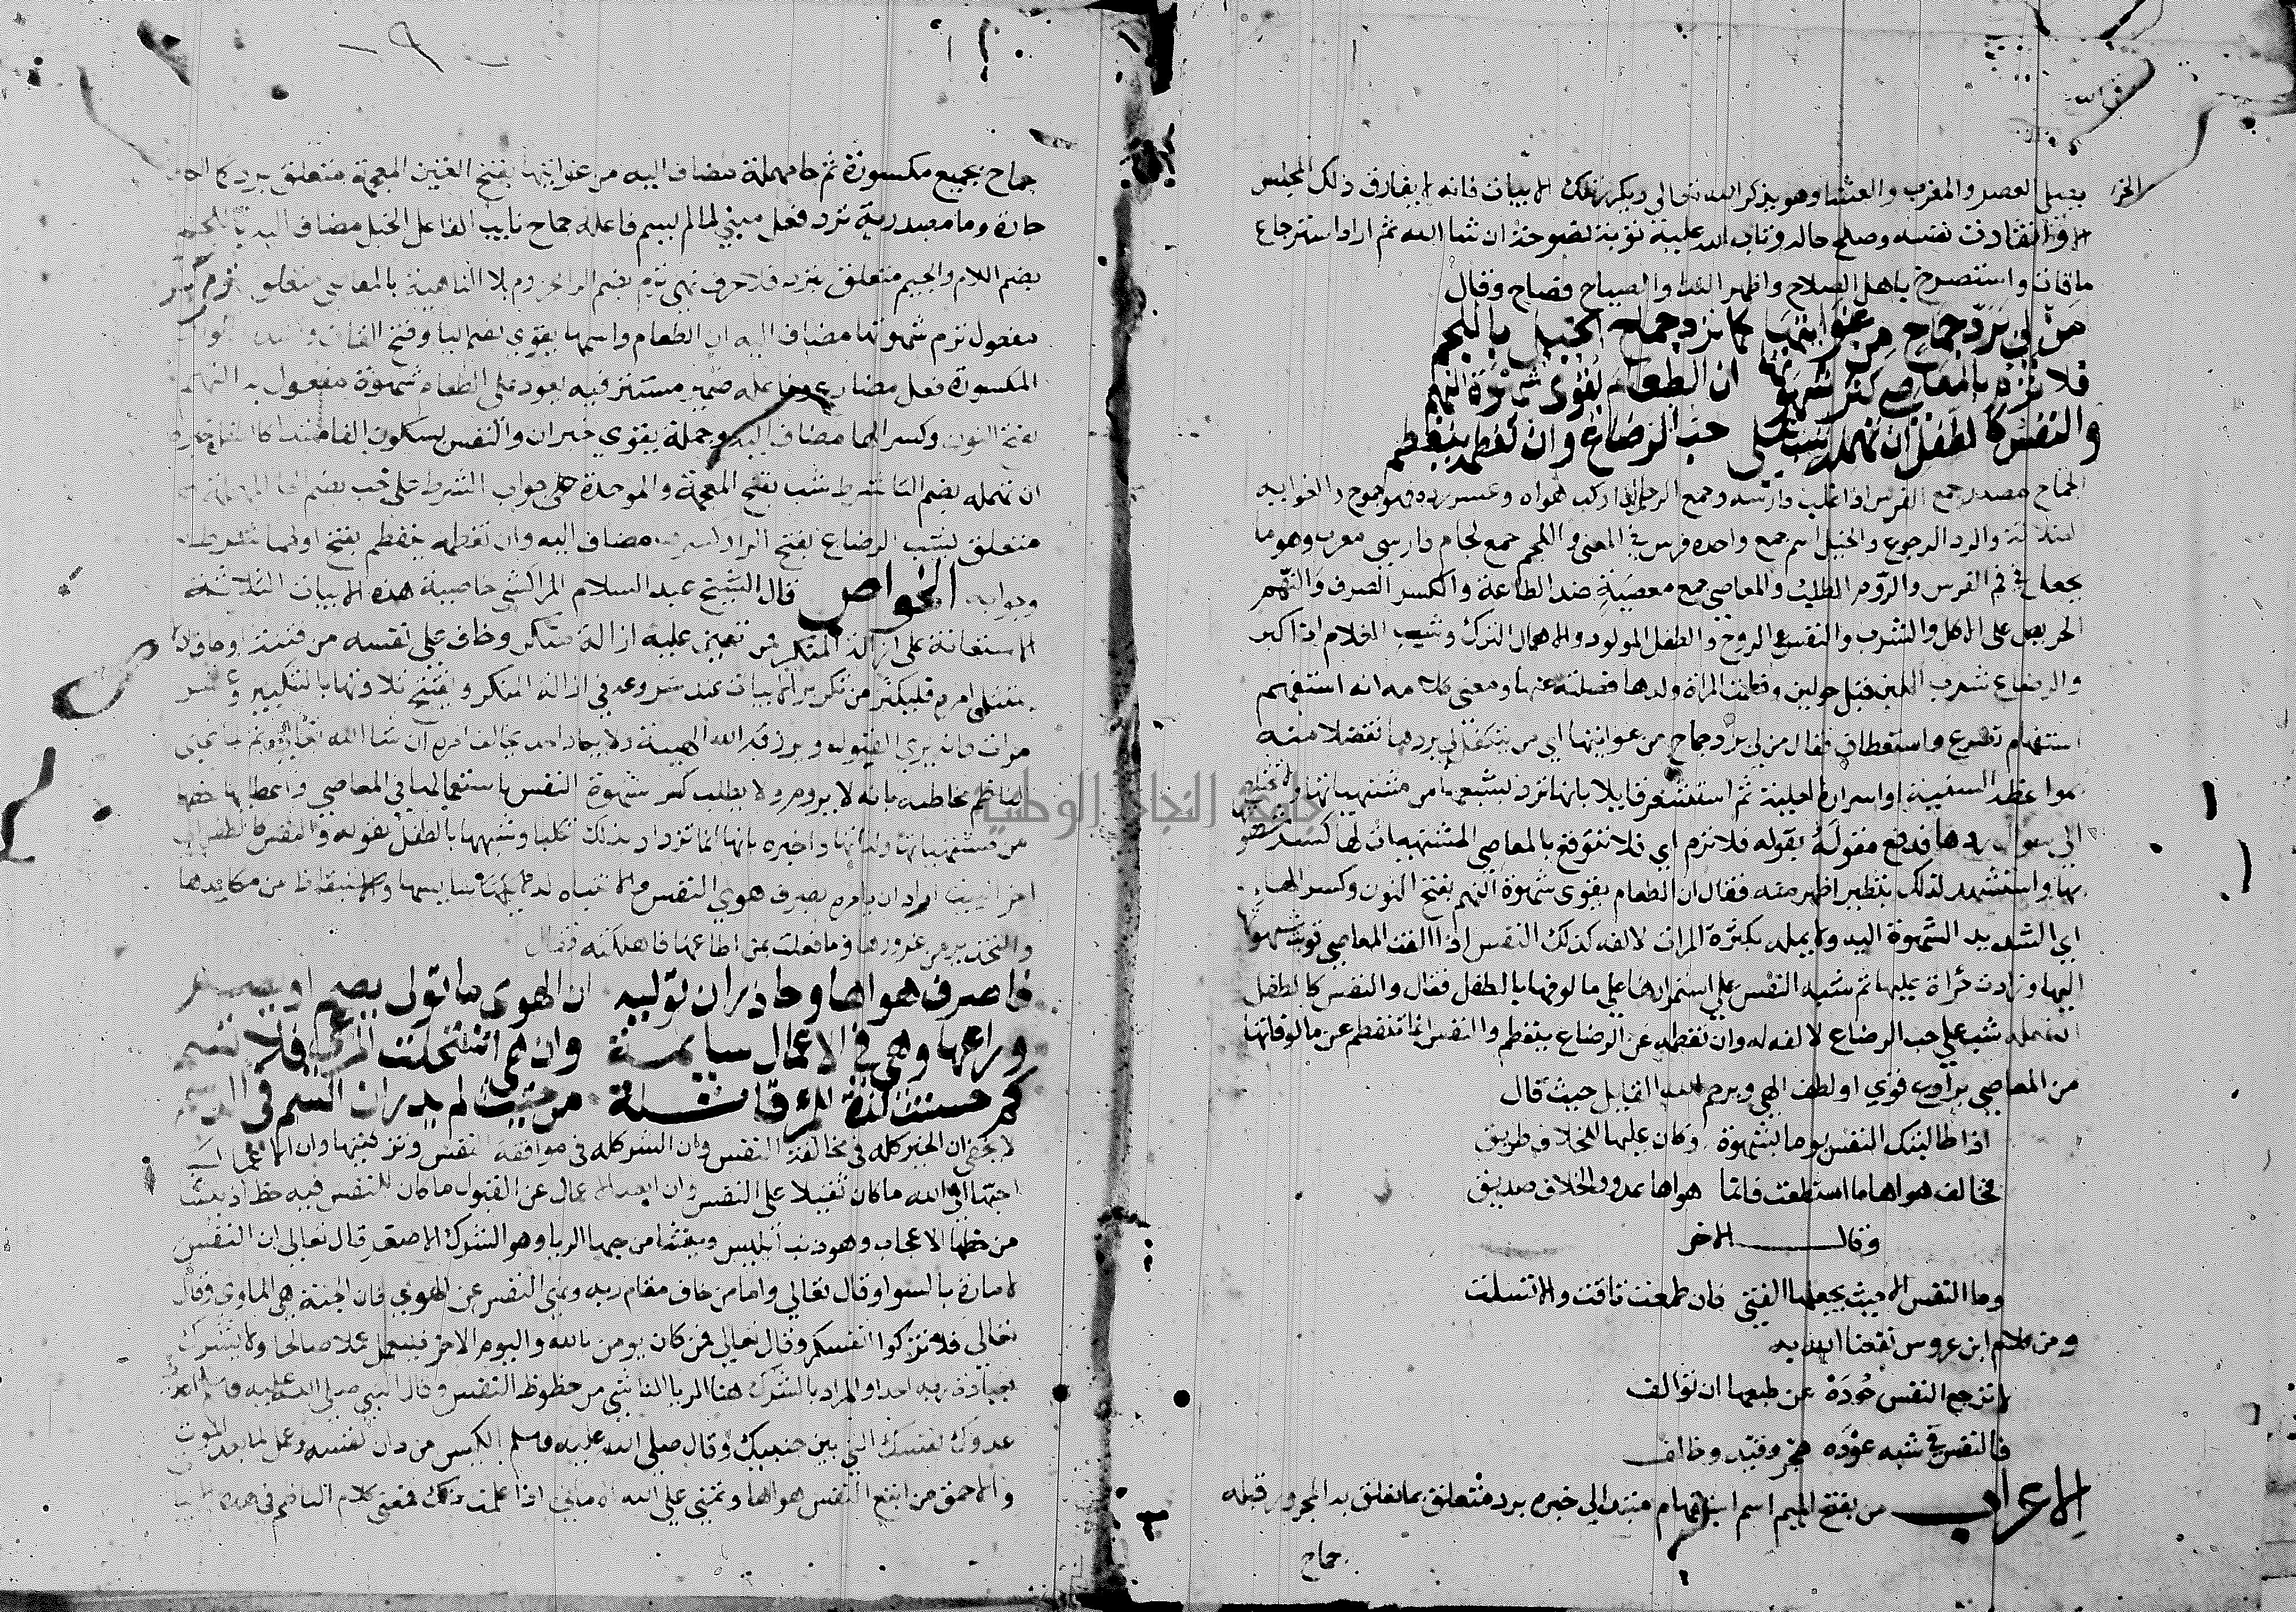 يصلى العصر والمغرب والعشا وهو يذكر الله تعالى ويكرر تلك الابيات فانه لا يفارق ذلك المجلس
الا وقد انقادت نفسه وصلح حاله وتاب الله عليه توبة نصوحة ان شا الله ثم اراد استرجاع
ما فات واستصرخ باهل الصلاح واظهر الندا والصياح فصاح وقال
من لي برد جماح من غوايتها كما ترد جماح الخيل باللجم
فلا ترم بالمعاصي كسر شهوتها ان الطعام يقوي شهوة النهم
والنفس كالطفل ان تهمله شب على حب الرضاع وان تفطمه ينفطم
الجماح مصدر جمح الفرس اذا غلب فارسه وجمح الرجل اذا ركب هواه وعسر رده فهو جموح والغواية
الضلالة والرد الرجوع والخيل اسم جمع واحده فرس في المعنى واللجم جمع لجام فارسي معرب وهو ما
يجعل في فم الفرس والروم الطلب والمعاصي جمع معصية ضد الطاعة والكسر الصرف والنهم
الحريص على الاكل والشرب والنفس الروح والطفل المولود والاهمال الترك وشب الغلام اذا كبر
والرضاع شرب اللبن قبل حولين وفطمت المراة ولدها فصلته عنها ومعنى كلامه انه استفهم
استفهام تضرع واستعطاف فقال من لي برد جماح من غوايتها اي من يتكفل لي بردها تفضلا منه
بمواعظه السنية او اسراره العلية ثم استشعر قايلا بانها ترد بشبعها من مشتهياتها
الى سوال ردها فدفع مقوله بقوله فلا ترم اي فلا تتوقع بالمعاصي المشتهيات لها كسر شهو
بها واستشهد لذلك بنظير اظهر منه فقال ان الطعام يقوى شهوة النهم بفتح النون وكسر الهاء
اي الشديد الشهوة اليه ولا يمله بكثرة المرات لالفه كذلك النفس اذا الفت المعاصي قويت شهوتها
اليها وزادت جراة عليها ثم شبه النفس على استمرارها على مالوفها بالطفل فقال والنفس كالطفل
ان تهمله شب على حب الرضاع لالفه له وان تفطمه عن الرضاع ينفطم والنفس انما تنفطم عن مالوفاتها
من المعاصي برادع قوي او لطف الهي ويرحم الله القايل حيث قال
اذا طالبتك النفس يوما بشهوة وكان عليها للخلاف طريق
فخالف هواها ما استطعت فانما هواها عدو والخلاف صديق
وقال الاخر
وما النفس الا حيث يجعلها الفتى فان طمعت تاقت والا تسلت
ومن كلام ابن عروس نفعنا الله به
لا ترجع النفس عن طبعها ان توالف
فالنفس في شبه عوده
الاعراب من بفتح الميم اسم استفهام مبتدا لي خبره برد متعلق بما تعلق به المجرور قبله
جماح
جماح بجيم مكسورة ثم حا مهملة مضاف اليه من غوايتها بفتح الغين المعجمة متعلق برد كما الكاف
جارة وما مصدرية ترد فعل مبني لما لم يسم فاعله جماح نايب الفاعل الخيل مضاف اليه باللجم
بضم اللام والجيم متعلق بترد فلا حرف نهي ترم بضم الرا مجزوم بلا الناهية بالمعاصي متعلق بترم كسر
مفعول ترم شهوتها مضاف اليه ان الطعام واسمها يقوي بضم اليا وفتح القاف
المكسورة فعل مضارع وفاعله ضمير مستتر فيه يعود على الطعام شهوة مفعول به النهم
بفتح النون وكسر الها مضاف اليه وجملة يقوي خبر ان والنفس بسكون الفا مبتدا كالطفل خبره
ان تهمله بضم التا شرط شب بفتح المعجمة والموحدة على جواب الشرط على حب بضم الحا المهملة
متعلق بشب الرضاع بفتح الرا مضاف اليه وان تفطمه ينفطم بفتح اولهما شرط
وجوابه الخواص قال الشيخ عبد السلام المراكشي خاصية هذه الابيات الثلاثة
الاستعانة على ازالة المنكر فمن تعين عليه ازالة منكر وخاف على نفسه من فتنة او خاف لا
يمتثل امره فليكثر من تكرير الابيات عند شروعه في ازالة المنكر ويفتتح تلاوتها بالتكبير عشر
مرات فانه يرى القبول ويرزقه الله الهيبة ولا يكاد احد يخالف امره ان شا الله تعالى
الناظم مخاطبه بانه لا يروم ولا يطلب كسر شهوة النفس باستعمالها في المعاصي واعطائها حظها
من مشتهياتها ولذاتها واخبره بانها انما تزداد بذلك كلبا وشبهها بالطفل بقوله والنفس كالطفل
اراد ان يامره بصرف هوى النفس والانتباه لدسايسها والاستيقاظ من مكايدها
والتحذير من غرورها وما فعلت بمن اطاعها فاهلكته فقال
فاصرف هواها وحاذر ان توليه ان الهوى ما تولى يصم او يصم
وراعها وهي في الاعمال سايمة وان هي استحلت المرعى فلا تسم
كم حسنت لذة للمرء قاتلة من حيث لم يدر ان السم في الدسم
لا يخفى ان الخير كله في مخالفة النفس وان الشر كله في موافقة النفس وتزكيتها وان الاعمال
احبها الى الله ما كان ثقيلا على النفس وان ابعد الاعمال عن القبول ما كان للنفس فيه حظ اذ ينشا
من حظها الاعجاب وهو ذنب ابليس وينشا من حبها الريا وهو الشرك الاصغر قال تعالى ان النفس
لامارة بالسوا وقال تعالى واما من خاف مقام ربه ونهى النفس عن الهوى فان الجنة هي الماوى وقال
تعالى فلا تزكوا انفسكم وقال تعالى فمن كان يومن بالله واليوم الاخر فليعمل عملا صالحا ولا يشرك
بعبادة ربه احدا والمراد بالشرك هنا الريا الناشي من حظوظ النفس وقال النبي صلى الله عليه وسلم اعدى
عدوك نفسك التي بين جنبيك وقال صلى الله عليه وسلم الكيس من دان نفسه وعمل لما بعد الموت
والاحمق من اتبع النفس هواها وتمنى على الله الاماني اذا علمت ذلك فمعنى كلام الناظم في هذه
جامعة النجاح الوطنية